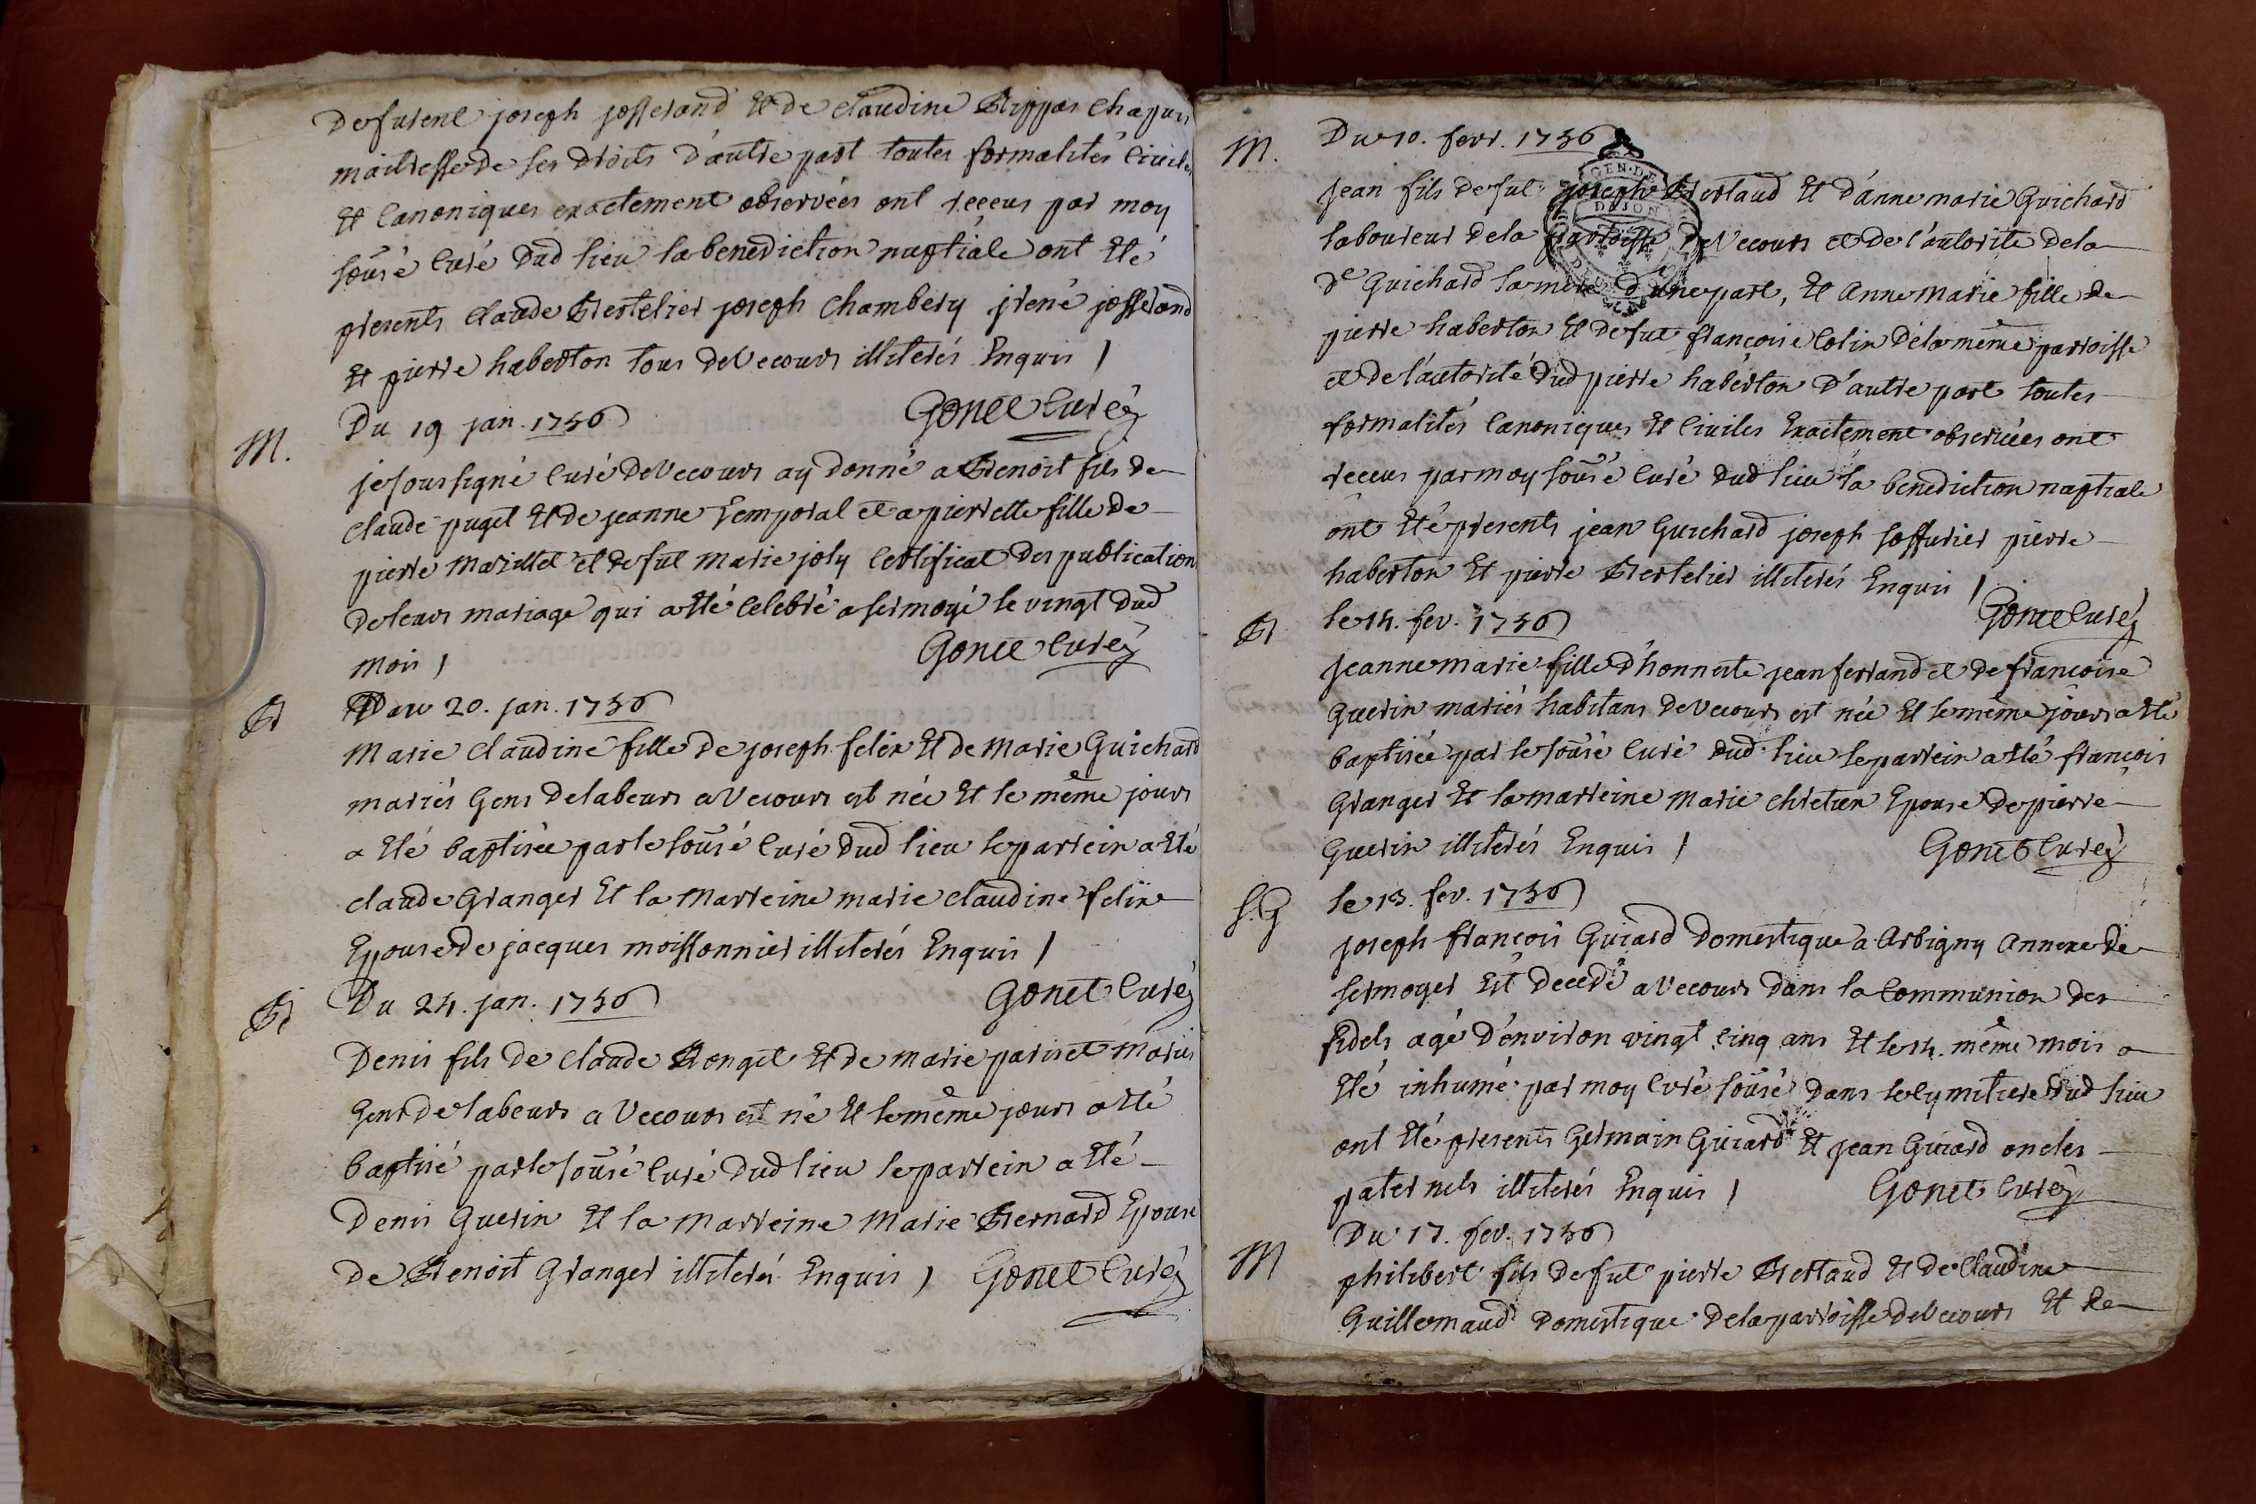 Defurent joseph josserand Et de claudine Rippas chapuis
maitresse de ses droits d'autre part toutes formalités Civiles
Et Canoniques exactement observées ont receus par moy
sousé Curé dud lieu la benediction nuptiale ont Eté
presents claude Bertelier joseph Chambery jrené josserand
Et pierre haberton tous de Vecours illiterés Enquis /
Gonet Curé
M. Du 19 jan. 1736
je soussigné Curé de Vecours ay donné a Benoit fils de
claude puget Et de jeanne temporal et a pierrette fille de
pierre Marillet et de fut Marie joly Certificat des publication
de leurs mariage qui a Eté Celebré a sermoyé le vingt dud
mois /
Gonet Curé
B Du 20. jan. 1736
Marie Claudine fille de joseph felix Et de Marie Guichard
mariés Gens delabeurs a Vecours est née Et le même jours
a Eté baptisée par le sousé Curé dud lieu le parrein a Eté
claude Granger Et la Marreine marie claudine felix
Epouse de jacques moissonnier illiterés Enquis /
Gonet Curé
B Du 24. jan. 1736
Denis fils de claude Ronget Et de marie pariset mariés
Gens de labeurs a Vecours est né Et le même jours a Eté
baptisé par le sousé Curé dud lieu le parrein a Eté
Denis Guerin Et la Marreine Marie Bernard Epouse
de Benoit Granger illiterés Enquis / Gonet Curé
M. Du 10. fevr. 1736
GEN. DE
DIJON
jean fils de fut joseph Bertaud Et d'anne marie Guichard
laboureur de la parroisse de Vecours et de l'autorite de la
de Guichard sa mere d'une part, Et anne Marie fille de
pierre haberton Et de fut françoise Colin de la même parroisse
et de l'autorité dud pierre haberton d'autre part toutes
formalités Canoniques Et Civiles Exactement observées ont
receus par moy sousé Curé dud lieu la benediction nuptiale
ont Eté presents jean Guichard joseph soffurier pierre
haberton Et pierre Bertelier illiterés Enquis /
Gonet Curé
B le 14. fev. 1736
Jeanne marie fille d'honneste jean ferrand et de francoise
Guerin mariés habitans de Vecours est née Et le même jours a Eté
baptisée par le sousé Curé dud lieu le parrein a Eté françois
Granger Et la marreine Marie chretien Epouse de pierre
Guerin illiterés Enquis /
Gonet Curé
S.G le 13. fev. 1736
joseph françois Guiard Domestique a Arbigny annexe de
sermoyer Est decedé a Vecours dans la Communion des
fidels agé d'environ vingt cinq ans Et le 14. même mois a
Eté inhumé par moy Curé sousé dans le Cymitiere dud lieu
ont Eté presents Germain Guiard Et jean Guiard oncles
paternels illiterés Enquis /
Gonet Curé
Du 17. fev. 1736
M philibert fils de fut pierre Bertaud Et de Claudine
Guillemaud domestique de la parroisse de Vecours Et de